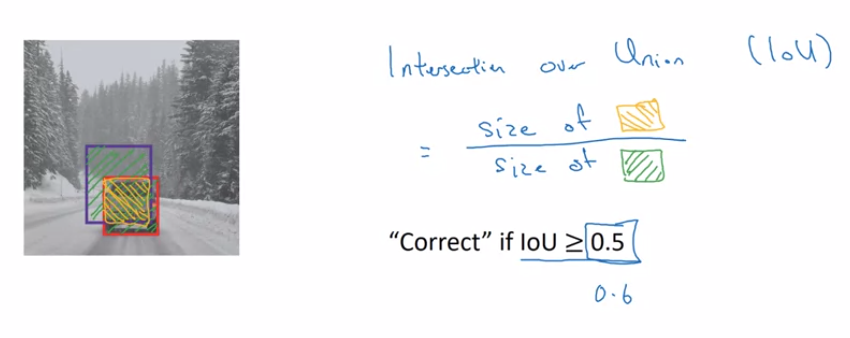 Intersection over Union (IoU)
= size of
size of
“Correct” if IoU ≥ 0.5
0.6